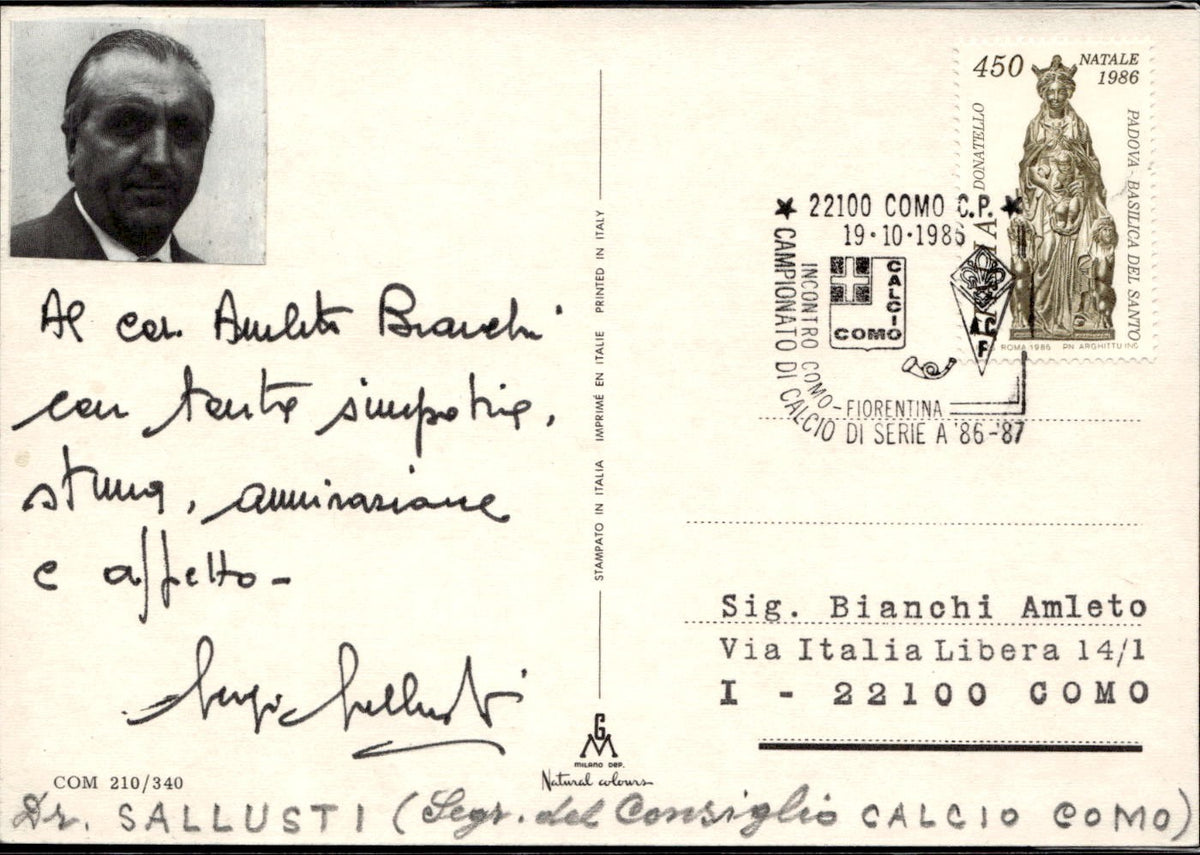 450 NATALE
1986
DONATELLO
PADOVA - BASILICA DEL SANTO
ROMA 1986 PN. ARGHITTU INC.
★ 22100 COMO C.P. ★
19·10·1986
CAMPIONATO DI CALCIO DI SERIE A '86-'87
INCONTRO COMO - FIORENTINA
CALCIO
COMO
ACF
Al car. Amleto Bianchi
con tanta simpatia,
stima, ammirazione
e affetto -
Sergio Sallusti
STAMPATO IN ITALIA IMPRIMÉ EN ITALIE PRINTED IN ITALY
Sig. Bianchi Amleto
Via Italia Libera 14/1
I - 22100 COMO
G M
MILANO DEP.
Natural colours
COM 210/340
Dr. SALLUSTI (Segr. del Consiglio CALCIO COMO)